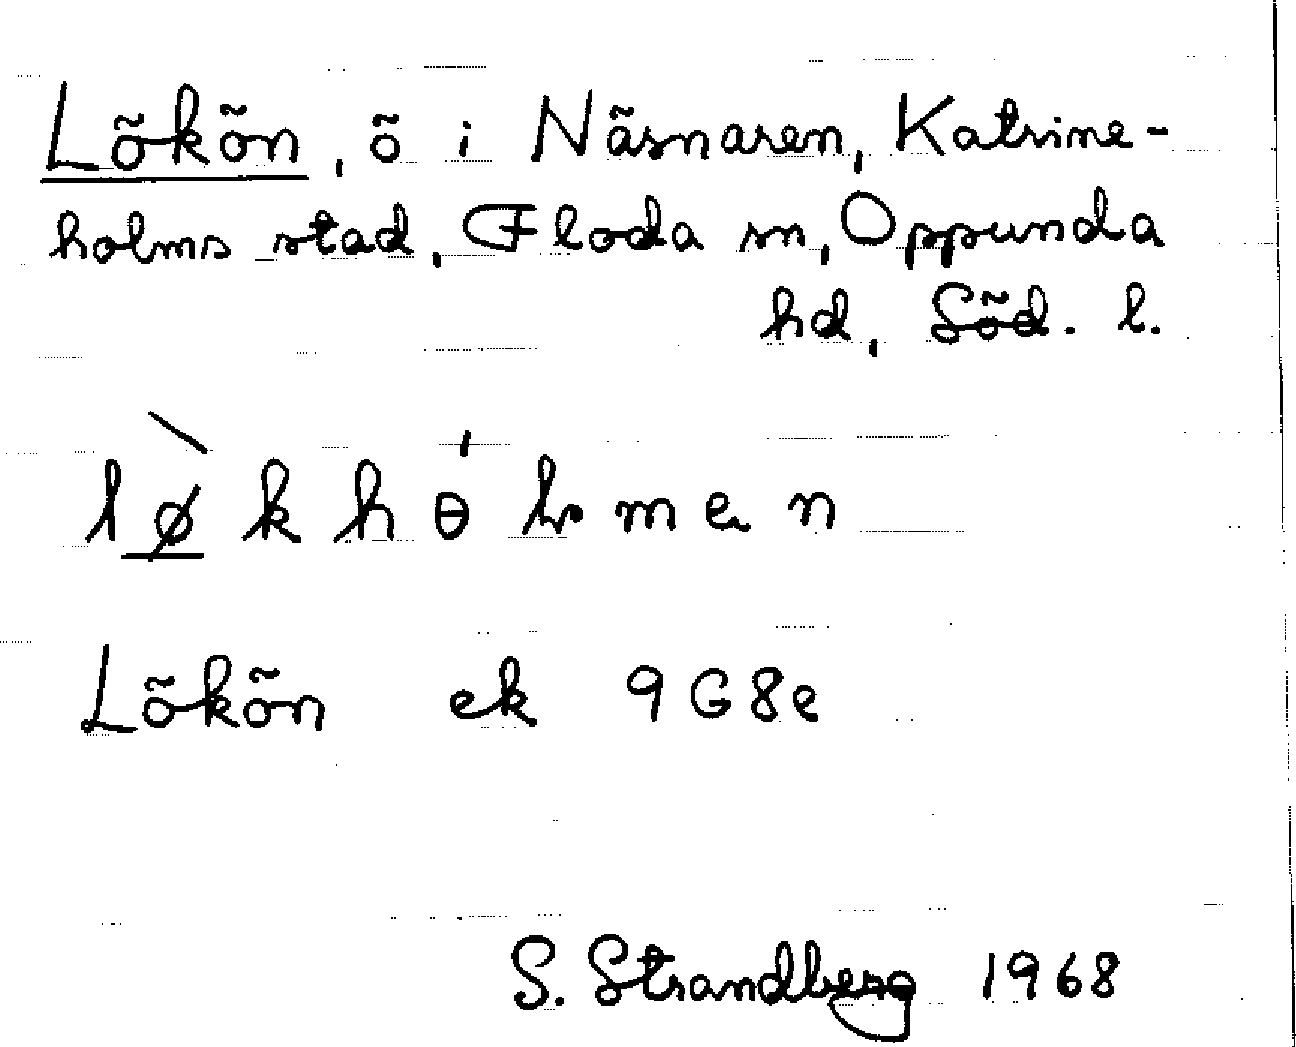 Lökön, ö i Näsnaren, Katrine-
holms stad, Floda sn, Oppunda
hd, Söd. l.
Lökön ek 9G8e
S. Strandberg 1968